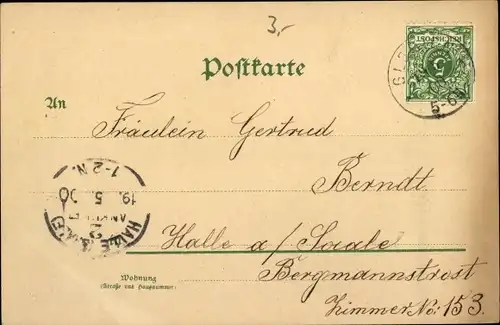 3,-
Postkarte
REICHSPOST
5
5-6
An
Fräulein Gertrud
Berndt
1-2 N.
19. 5. 00
HALLE
2
Halle a/Saale
Bergmannstrost
Wohnung
(Straße und Hausnummer)
Zimmer No: 153.